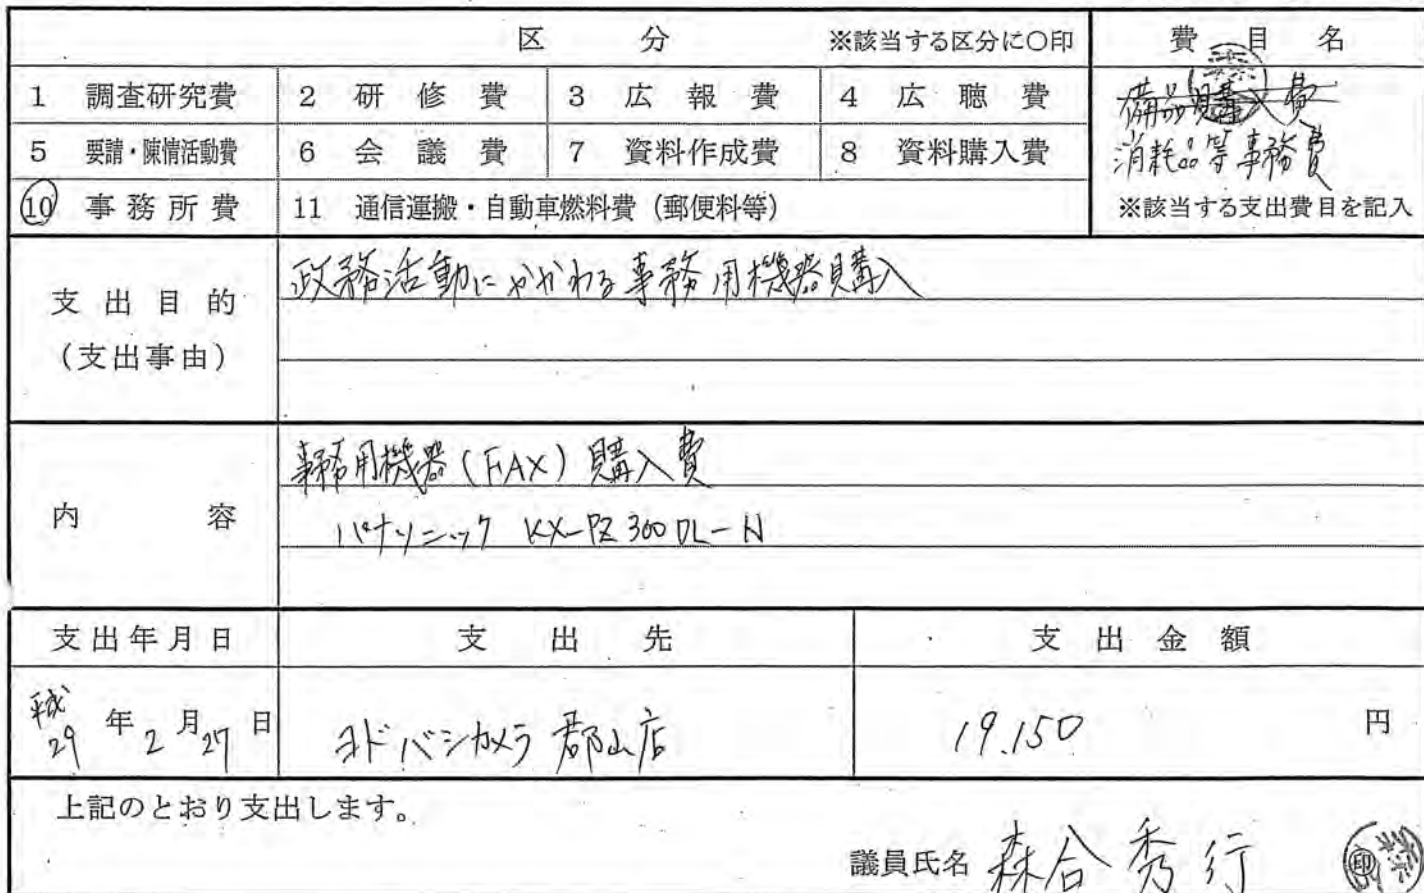 区 分 ※該当する区分に○印 費 目 名
1 調査研究費 2 研 修 費 3 広 報 費 4 広 聴 費 備品購入費
5 要請・陳情活動費 6 会 議 費 7 資料作成費 8 資料購入費 消耗品等事務費
10 事 務 所 費 11 通信運搬・自動車燃料費（郵便料等） ※該当する支出費目を記入
支 出 目 的 政務活動にかかわる事務用機器購入
（支出事由）
事務用機器(FAX)購入費
内 容 パナソニック KX-PZ300DL-N
支出年月日 支 出 先 支 出 金 額
平成29年2月27日 ヨドバシカメラ 郡山店 19.150 円
上記のとおり支出します。
議員氏名 森合秀行 印